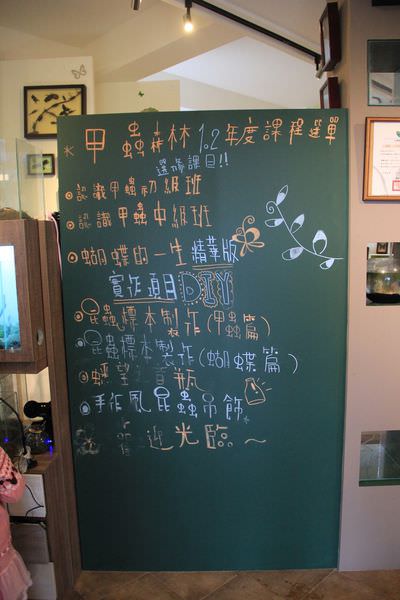 *甲蟲森林1.2年度課程選單
選修課目!!
認識甲蟲初級班
認識甲蟲中級班
蝴蝶的一生 精華版
實作項目DIY
昆蟲標本製作(甲蟲篇)
昆蟲標本製作(蝴蝶篇)
蟶望 音瓶
手作風昆蟲吊飾
迎光臨～